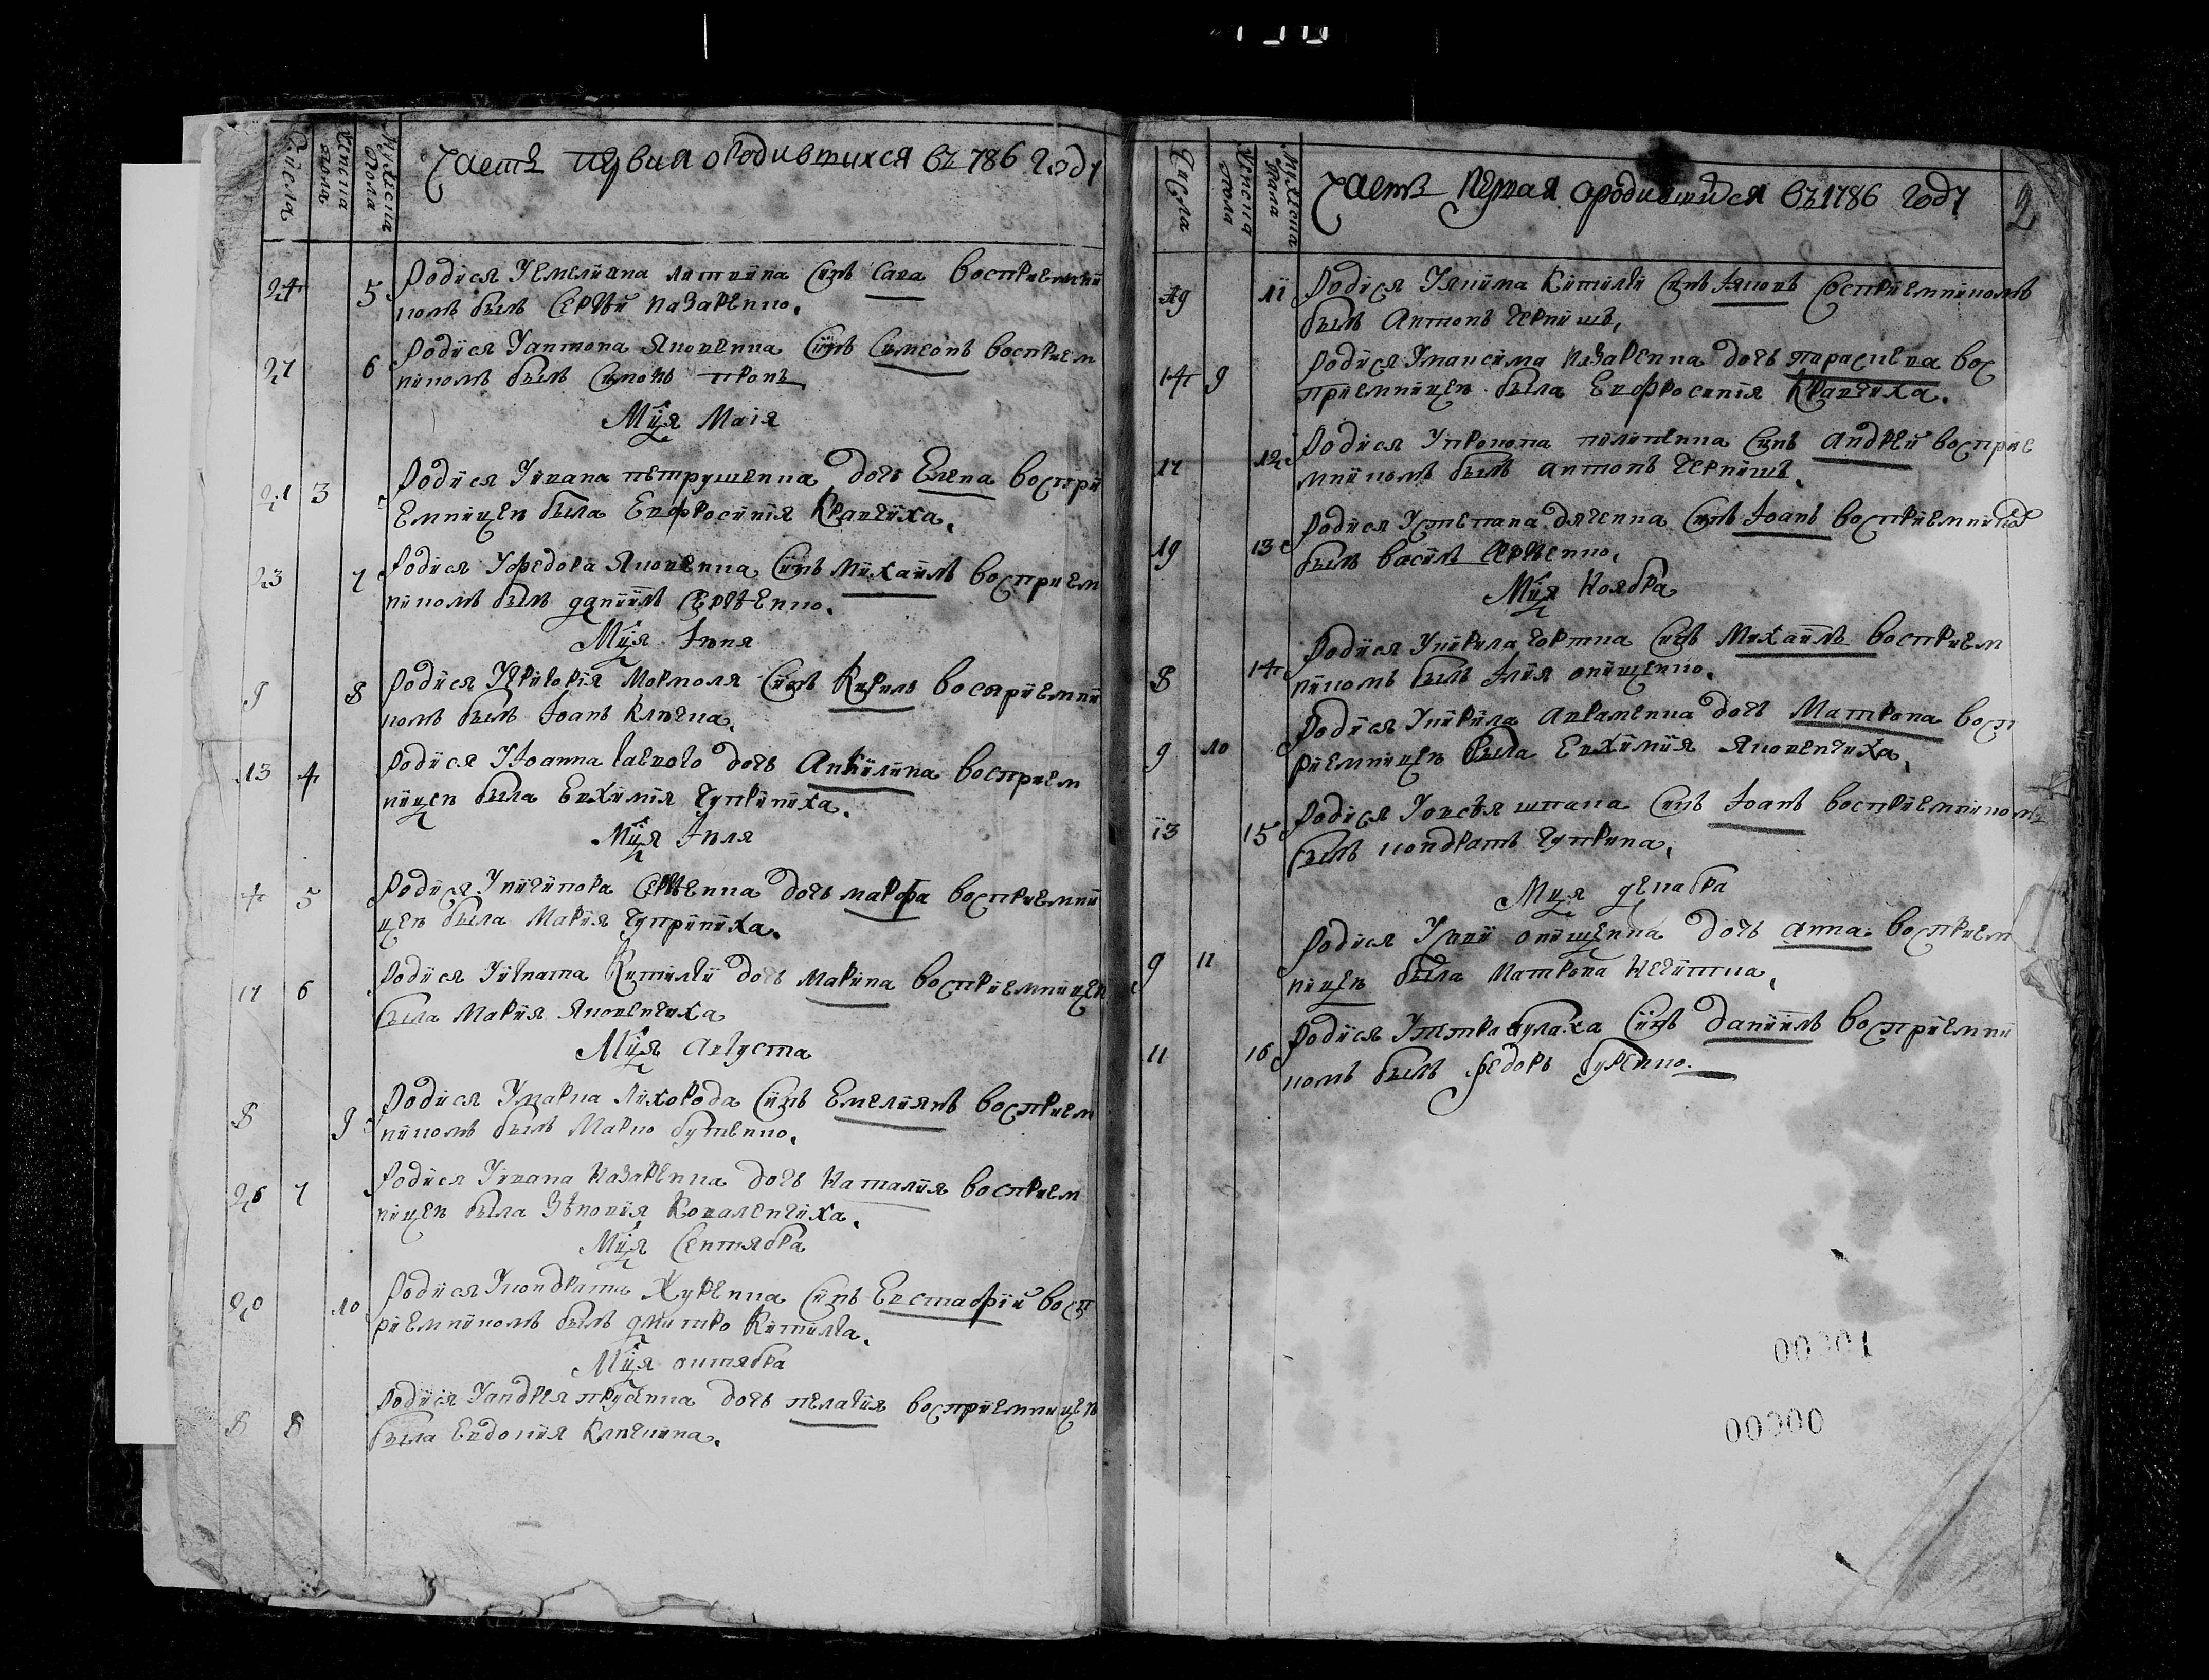 Числа
Женска пола
Мужеска пола
Часть первая о родившихся въ 786 году
24 5 Родися У Емелияна литвина Синъ Сава Восприемни
комъ былъ Сергѣй назаренко.
27 6 Родися У антона Яковенка Синъ Симеонъ восприем
никомъ былъ Симонъ
Мця Маія
21 3 Родися У ивана петрушенка дочь Елена Воспри
емницею была Евфросинія Кравчиха.
23 7 Родися У федора Яковенка Синъ Михаилъ восприем
никомъ былъ даниилъ Сергѣенко.
Мця Июня
9 8 Родися У григория Морколя Синъ Кирилъ Восприемни
комъ былъ Иоанъ Ключка.
13 4 Родися У Иоанна гаевого дочь Акилина восприем
ницею была Евхимія Чуприниха.
Мця Июля
4 5 Родися У никифора Сергѣенка дочь марфа восприемни
цею была Мария Чуприниха.
17 6 Родися У игната Китилги дочь Марина восприемницею
была Мария Яковенчиха
Мця Августа
8 9 Родися У марка Лихорода Синъ Емелиянъ восприем
никомъ былъ Марко бутенко.
26 7 Родися У ивана Назаренка дочь Наталия восприем
ницею была Зѣновия Коваленчиха.
Мця Сентября
20 10 Родися У кондрата Журенка Синъ Евстафій восп
риемникомъ былъ дмитро Китилга.
Мця октября
8 8 Родися У андрея прусенка дочь пелагия восприемницею
была Евдокия Ключкина.
Числа
Женска пола
Мужеска пола
Часть Первая о родившихся въ 1786 году
2
19 11 Родися У якима Китилги Синъ Яковъ восприемникомъ
былъ Антонъ Чернишъ.
14 9 Родися У максима Назаренка дочь параскева вос
приемницею была Евфросинія Кравчиха.
17 12 Родися У прокопа пилипенка Синъ андрей восприе
мникомъ былъ антонъ Чернишъ.
19 13 Родися У степана дяченка Синъ Иоанъ восприемником
былъ василь Сергѣенко.
Мця Ноября
8 14 Родися У кирила Чортка Синъ Михаилъ восприем
никомъ былъ Илия онищенко.
9 10 Родися У кирила авраменка дочь Матрона восп
риемницею была Евхимия Яковенчиха.
13 15 Родися У овсѣя шпака Синъ Иоанъ восприемникомъ
былъ кондратъ Чуприна.
Мця декабра
9 11 Родися У Сави онищенка дочь анна восприем
ницею была Матрона
11 16 Родися У петра булаха Синъ даниилъ восприемни
комъ былъ федоръ буренко.